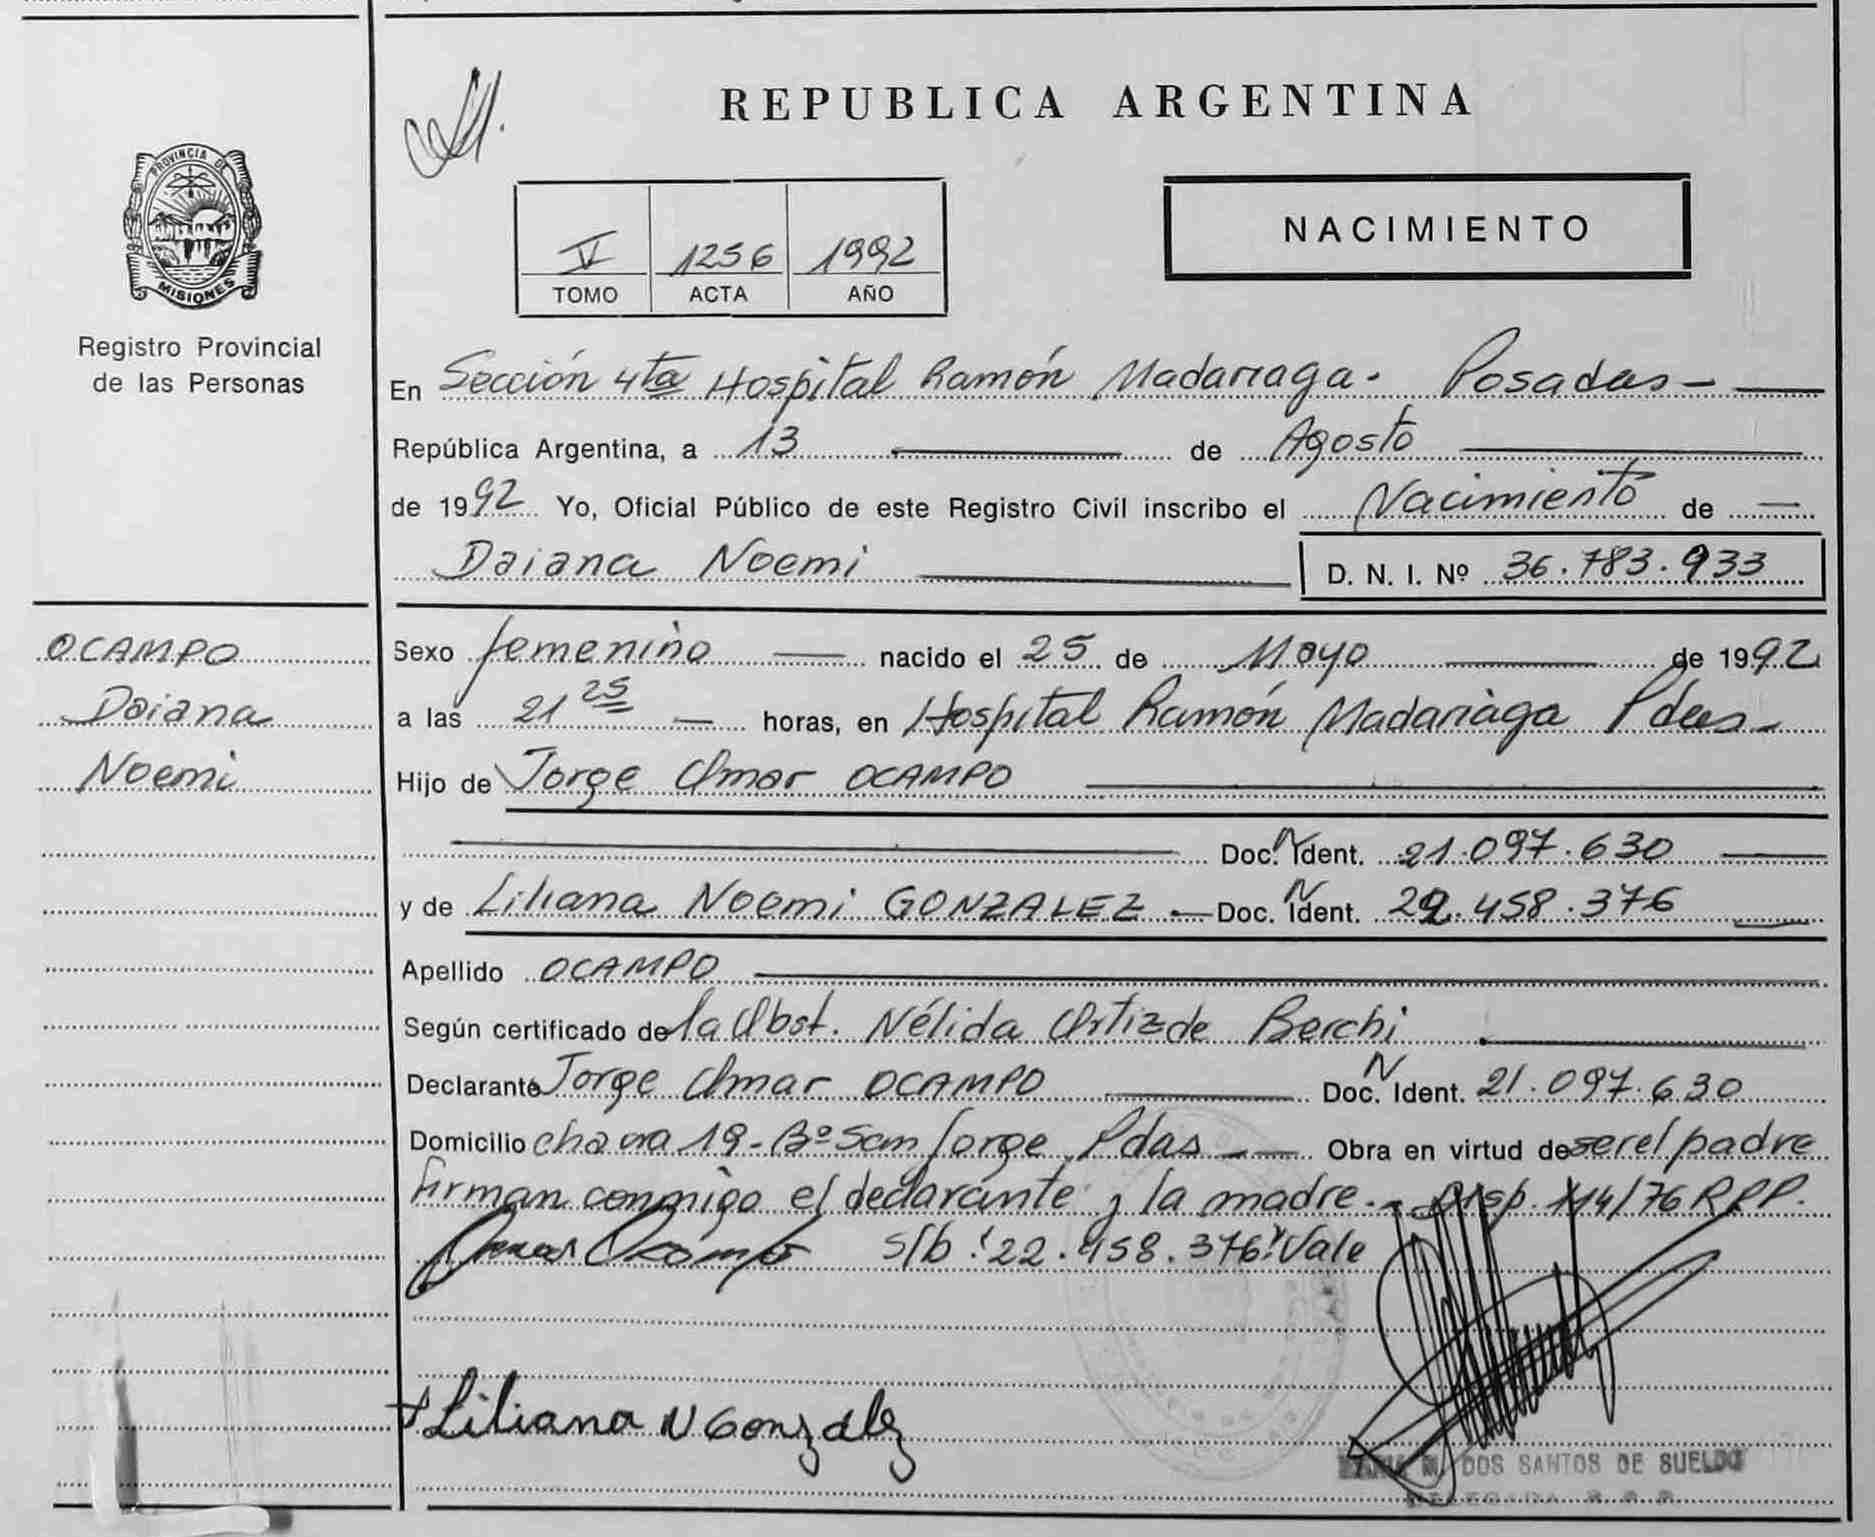 REPUBLICA ARGENTINA
PROVINCIA DE
MISIONES
Registro Provincial
de las Personas
V 1256 1992
TOMO ACTA AÑO
NACIMIENTO
En Sección 4ta Hospital Ramón Madariaga. Posadas
República Argentina, a 13 de Agosto
de 1992 Yo, Oficial Público de este Registro Civil inscribo el Nacimiento de
Daiana Noemi D. N. I. Nº 36.783.933
OCAMPO
Daiana
Noemi
Sexo femenino nacido el 25 de Mayo de 1992
a las 21 25 horas, en Hospital Ramón Madariaga Pdas
Hijo de Jorge Omar OCAMPO
Doc. N Ident. 21.097.630
y de Liliana Noemi GONZALEZ Doc. N Ident. 22.458.376
Apellido OCAMPO
Según certificado de la Obst. Nélida Ortiz de Berchi
Declarante Jorge Omar OCAMPO Doc. N Ident. 21.097.630
Domicilio chacra 19 - Bº San Jorge Pdas Obra en virtud de ser el padre
firman conmigo el declarante y la madre. Disp. 114/76 RPP.
Omar Ocampo s/b "22.458.376" Vale
Liliana N Gonzalez
MARIA M. DOS SANTOS DE SUELDO
DELEGADA